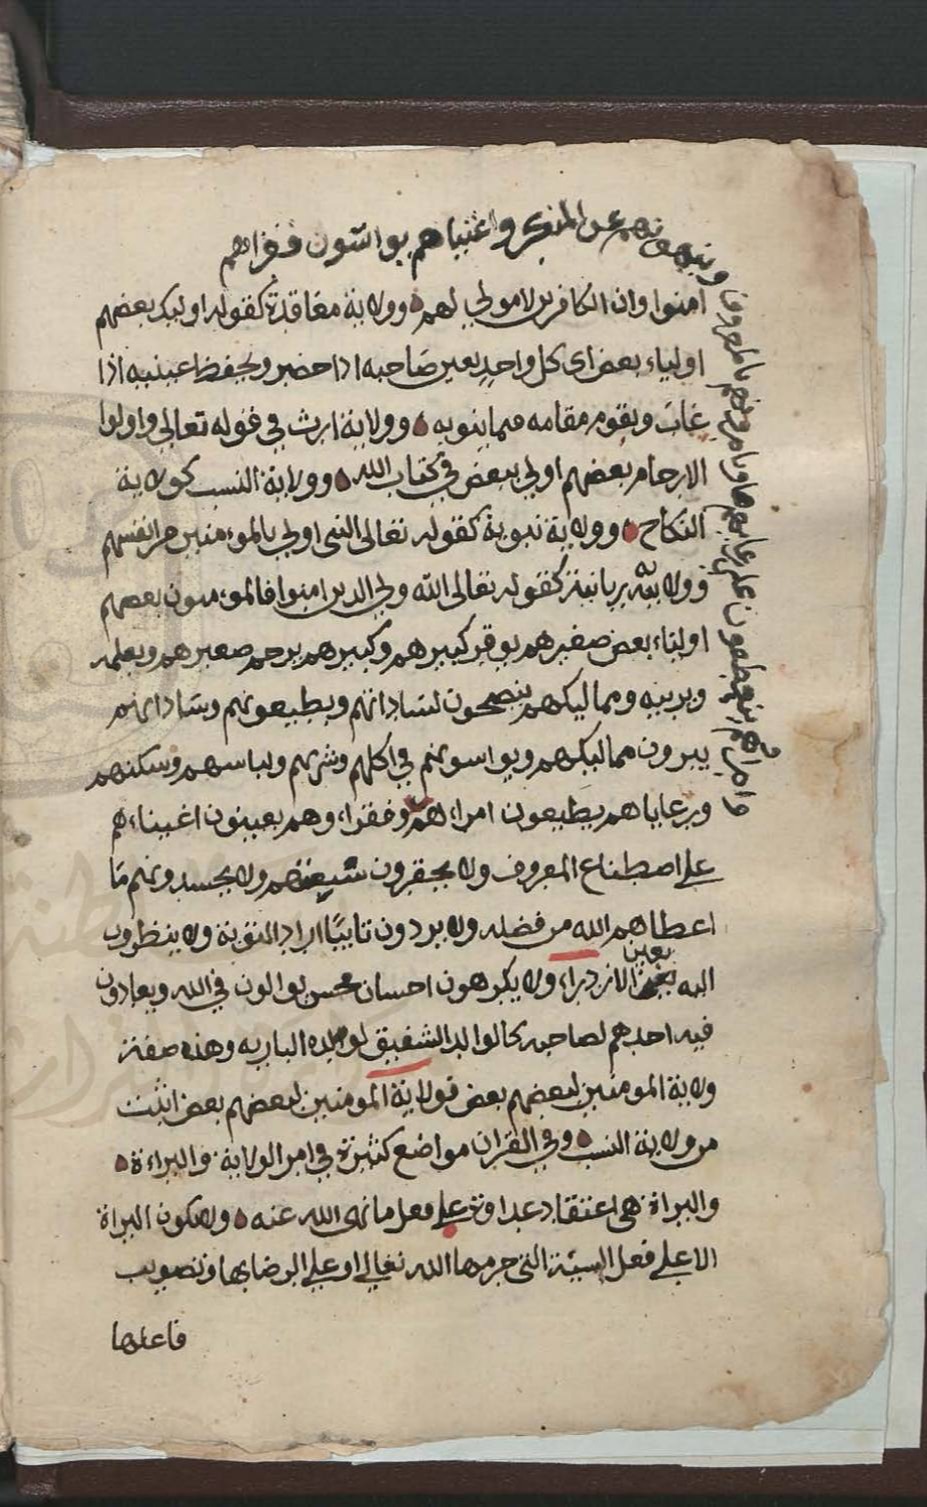 وينهونهم عن المنكر واغنياهم يواسون فقراهم
امنوا وان الكافرين لا مولي لهم ووولاية معاقدة كقوله اوليك بعضهم
اولياء بعض اى كل واحد يعين صاحبه اذا حضر ويحفظ اعينيه اذا
غاب ويقوم مقامه فيما ينوبه ووولاية ارث في قوله تعالي واولوا
الارحام بعضهم اولي ببعض في كتاب الله ووولاية النسب كولاية
النكاح ووولاية نبوية كقوله تعالى النبى اولي بالمومنين من انفسهم
وولاية ربانية كقوله تعالى الله ولي الدين امنوا فالمومنون بعضهم
اولياء بعض صغيرهم يوقر كبيرهم وكبيرهم يرحم صغيرهم ويعلمه
ويربيه ومماليكهم ينصحون لساداتهم ويطيعونهم وساداتهم
يبرون مماليكهم ويواسونهم في اكلهم وشربهم ولباسهم وسكنهم
ورعاياهم يطيعون امراءهم وفقراء وهم يعينون اغنياءهم
على اصطناع المعروف ولا يحقرون ولا يحسدونهم ما
اعطاهم الله من فضله ولا يردون تايبا اراد التوبة ولا ينظرون
اليه بعين الازدراء ولا يكرهون احسان محسن يوالون في الله ويعادون
فيه احدهم لصاحبه كالوالد الشفيق لولده الباربه وهذه صفة
ولاية المومنين لبعضهم بعض فولاية المومنين لبعضهم بعض اثبت
من ولاية النسب وفي القران مواضع كثيرة في امر الولاية والبراءة
والبراة هى اعتقاد عداوة على فعل ما نهى الله عنه ولا تكون البراة
الا على فعل السيئة التى حرمها الله تعالى او على الرضا بها وتصويب
فاعلها
وامراهم